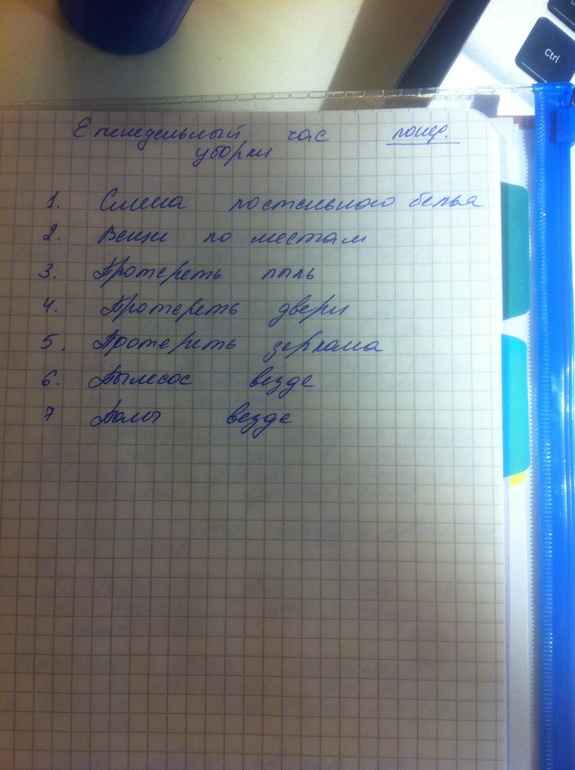 Еженедельный час понед.
уборки
1. Смена постельного белья
2. Вещи по местам
3. Протереть пыль
4. Протереть двери
5. Протереть зеркала
6. Пылесос везде
7 Полы везде
Ctrl